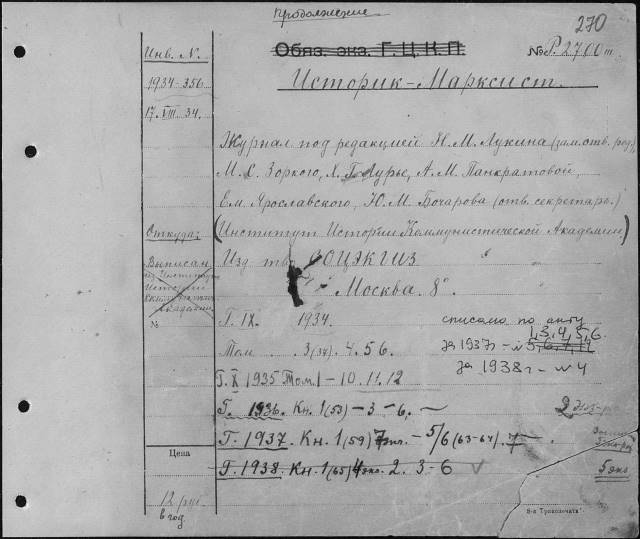 Продолжение
270
Обяз. экз. Г.Ц.К.П.
№ Р.2700
Инв. N.
Историк-Марксист.
1934-356
17.VIII.34.
Журнал под редакцией Н.М. Лукина (зам. отв. ред.)
М.С. Зоркого, Х.Г. Лурье, А.М. Панкратовой,
Ем. Ярославского, Ю.М. Бочарова (отв. секретарь.)
(Институт Истории Коммунистической Академии)
Откуда:
Выписан
из Института
Истории
Академии
№
Изд-тво СОЦЭКГИЗ
Москва. 8°.
Г. IX. 1934.
списано по акту
1, 3, 4, 5, 6.
Том . . 3(37). 4. 5 6.
за 1937г - №
за 1938г - № 4
Г. X 1935 Том. 1 - 10. 11. 12
Г. 1936. Кн. 1(53) - 3 - 6. -
Г. 1937. Кн. 1(59) - 5/6 (63-64). 7
Г. 1938. Кн. 1(65) 4 экз. 2. 3 - 6
5 экз
Цена
12 руб
в год.